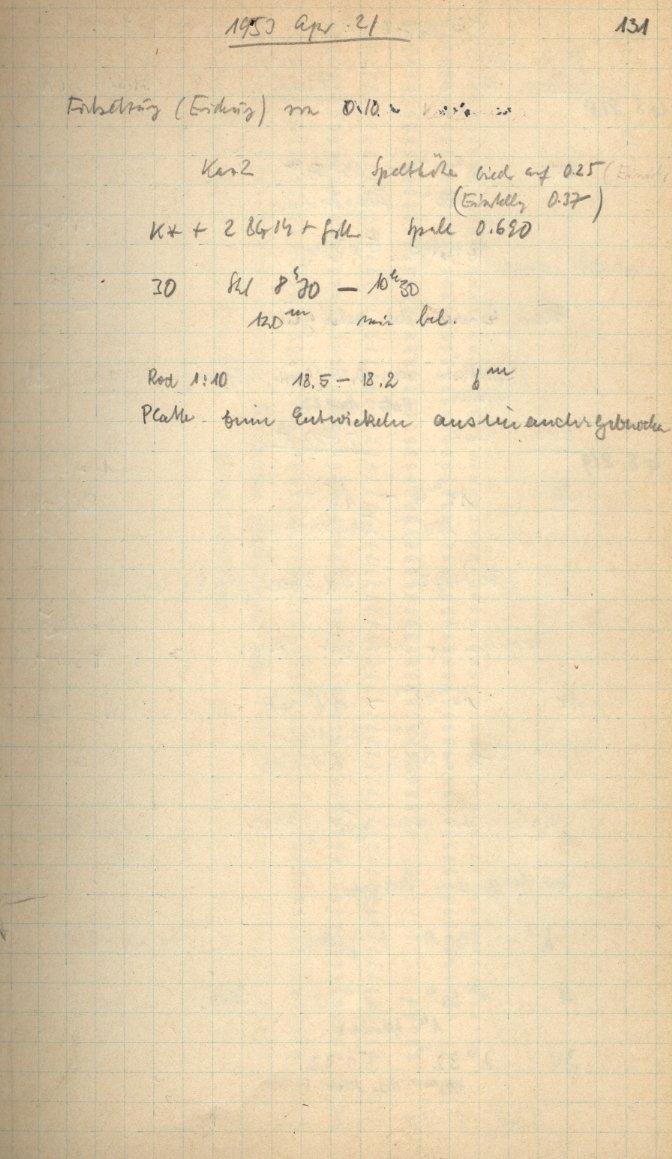 1953 Apr. 21 131
(Eichung) von 0.10
Kas 2 Spalthöhe wieder auf 0.25
(Einstellg 0.37)
K* + 2 BG 14 + Spalt 0.690
30 8h30 — 10h30
120m bel.
Rod 1:10 18.5 — 18.2 6m
Platte beim Entwickeln auseinandergebrochen